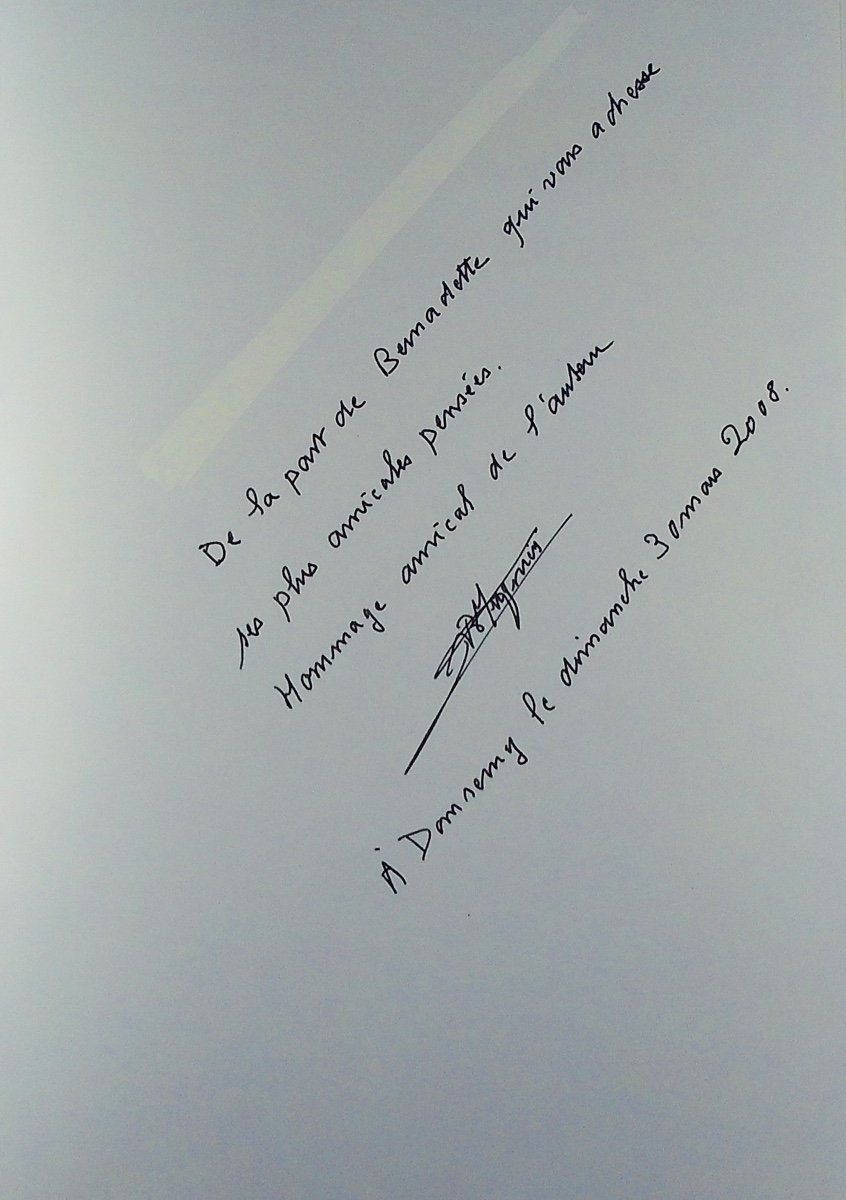 De la part de Bernadette qui vous adresse
ses plus amicales pensées.
Hommage amical de l'auteur
À Domremy le dimanche 30 mars 2008.